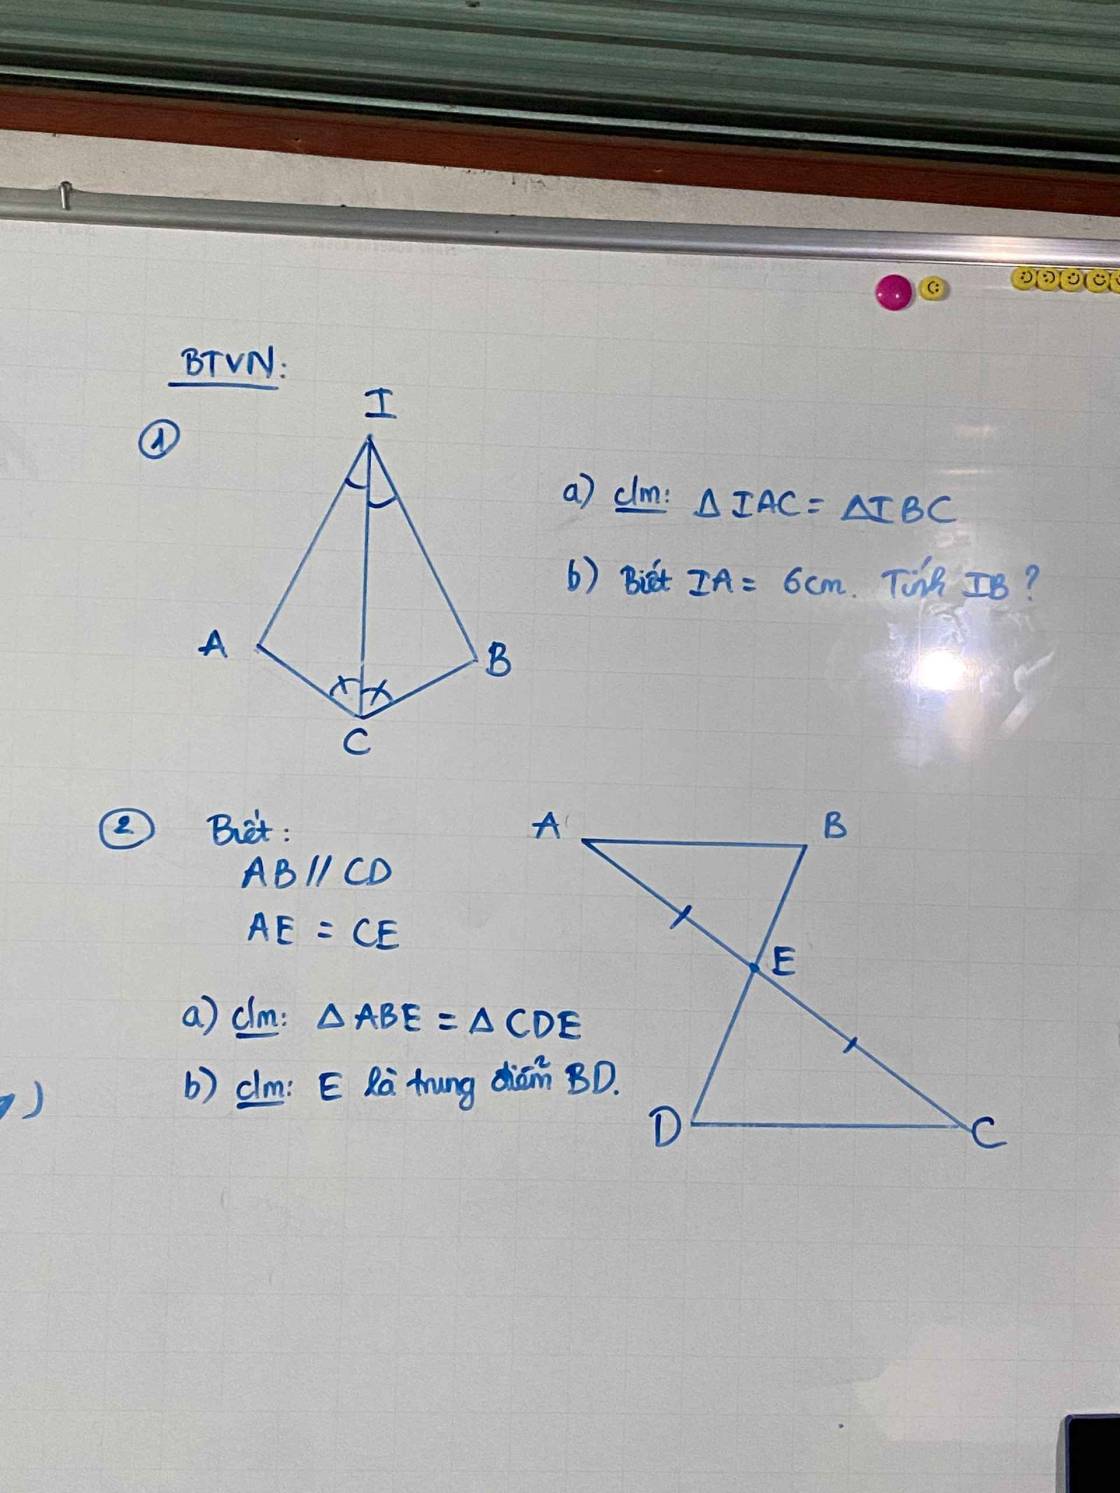 BTVN:
①
I
A
B
C
a) c/m: Δ IAC = Δ IBC
b) Biết IA = 6cm. Tính IB?
② Biết:
AB // CD
AE = CE
A
B
E
D
C
a) c/m: Δ ABE = Δ CDE
b) c/m: E là trung điểm BD.
)